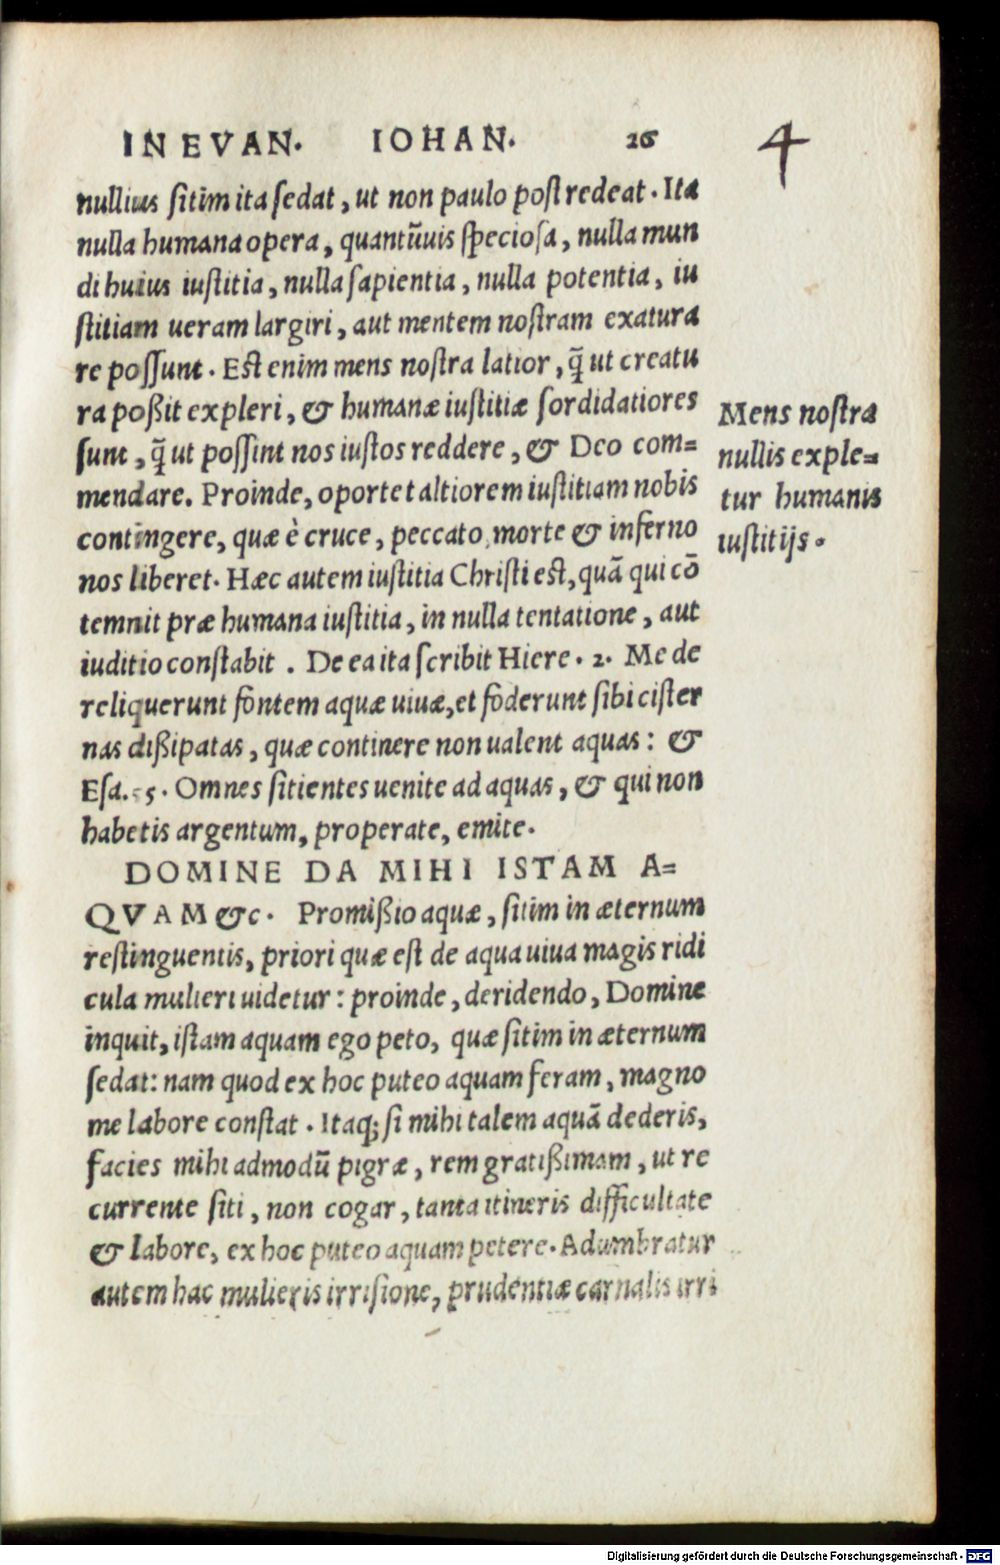 IN EVAN. IOHAN. 26
4
nullius sitim ita sedat, ut non paulo post redeat. Ita
nulla humana opera, quantũuis speciosa, nulla mun
di huius iustitia, nulla sapientia, nulla potentia, iu
stitiam ueram largiri, aut mentem nostram exatura
re possunt. Est enim mens nostra latior, q̃ ut creatu
ra poßit expleri, & humanæ iustitiæ sordidatiores
sunt, q̃ ut possint nos iustos reddere, & Deo com=
mendare. Proinde, oportet altiorem iustitiam nobis
contingere, quæ è cruce, peccato, morte & inferno
nos liberet. Hæc autem iustitia Christi est, quã qui cõ
temnit præ humana iustitia, in nulla tentatione, aut
iuditio constabit . De ea ita scribit Hiere. 2. Me de
reliquerunt fontem aquæ uiuæ, et foderunt sibi cister
nas dißipatas, quæ continere non ualent aquas: &
Esa. 55. Omnes sitientes uenite ad aquas, & qui non
habetis argentum, properate, emite.
DOMINE DA MIHI ISTAM A=
QVAM &c. Promißio aquæ, sitim in æternum
restinguentis, priori quæ est de aqua uiua magis ridi
cula mulieri uidetur: proinde, deridendo, Domine
inquit, istam aquam ego peto, quæ sitim in æternum
sedat: nam quod ex hoc puteo aquam feram, magno
me labore constat. Itaq; si mihi talem aquã dederis,
facies mihi admodũ pigræ, rem gratißimam, ut re
currente siti, non cogar, tanta itineris difficultate
& labore, ex hoc puteo aquam petere. Adumbratur
autem hac mulieris irrisione, prudentiæ carnalis irri
Mens nostra
nullis exple=
tur humanis
iustitijs.
Digitalisierung gefördert durch die Deutsche Forschungsgemeinschaft - DFG